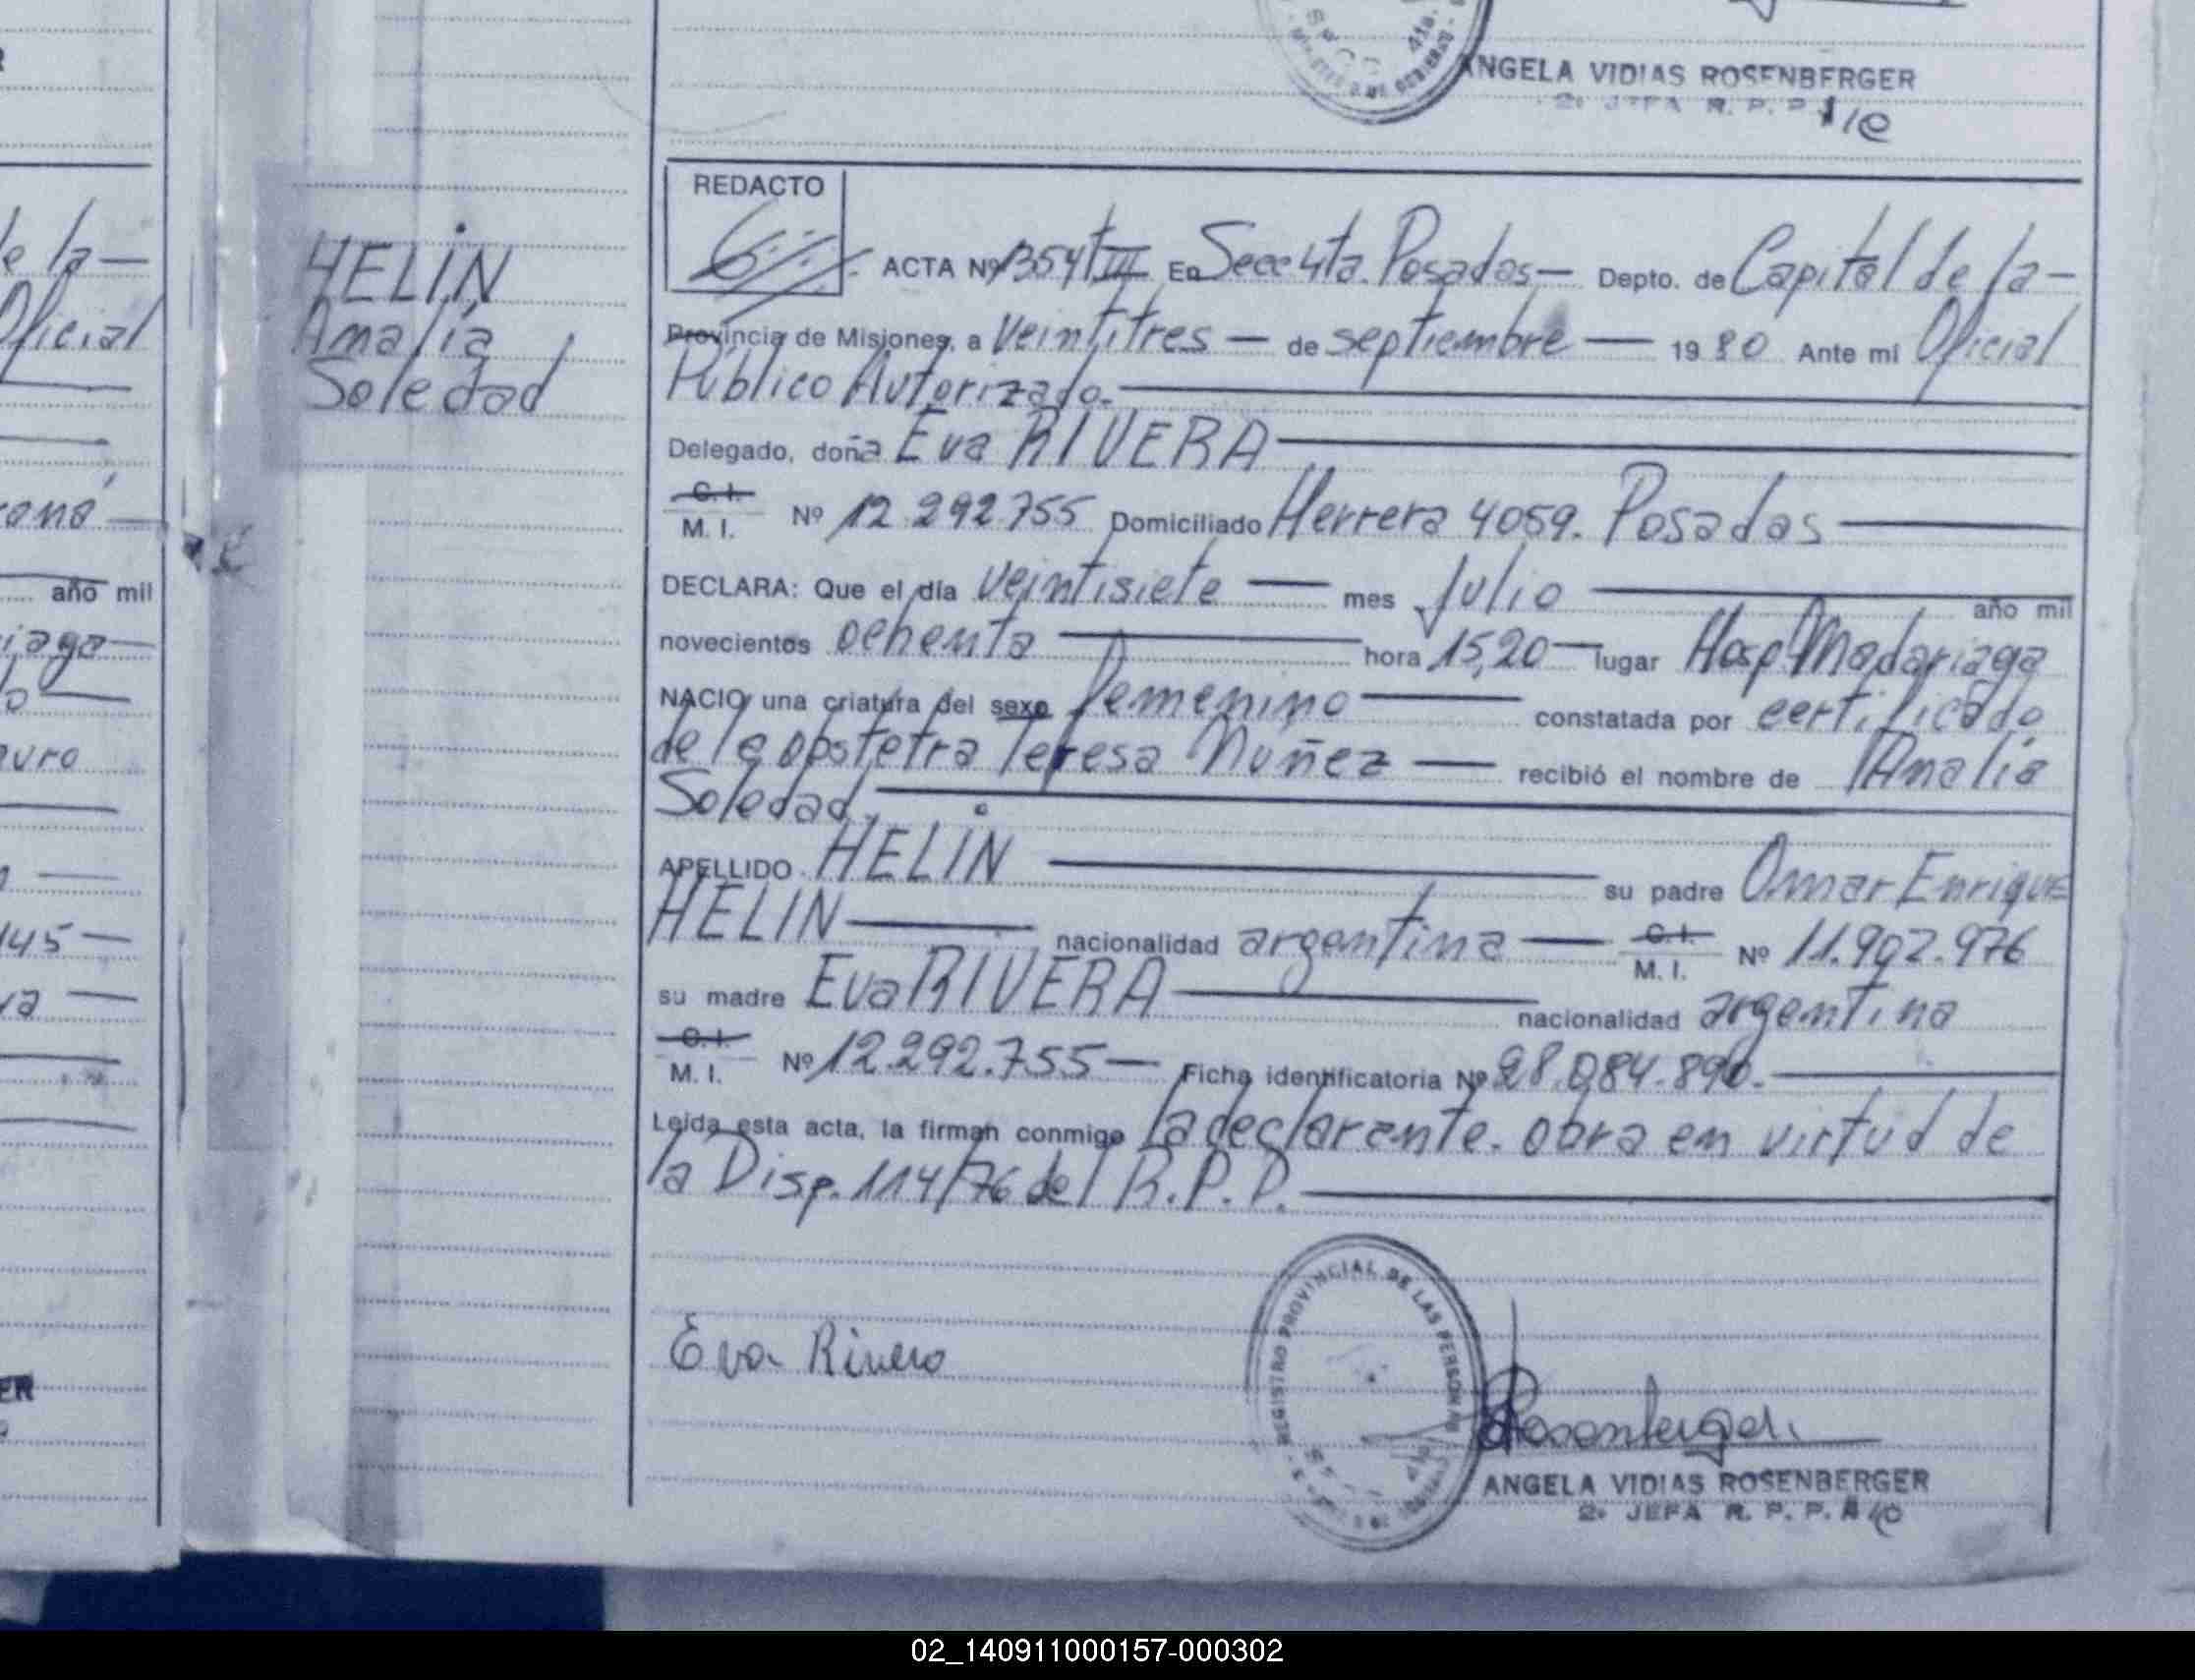 ANGELA VIDIAS ROSENBERGER
2º JEFA R. P. P.
REDACTO
ACTA Nº 1354 t III En Secc 4ta. Posadas — Depto. de Capital de la —
Provincia de Misiones, a veintitres — de septiembre — 1980 Ante mi Oficial
Público Autorizado.
Delegado, doña Eva RIVERA
C. I.
M. I. Nº 12.292.755 Domiciliado Herrera 4059. Posadas
DECLARA: Que el día veintisiete — mes Julio — año mil
novecientos ochenta — hora 15,20 — lugar Hosp. Madariaga
NACIO una criatura del sexo femenino — constatada por certificado
de la obstetra Teresa Nuñez — recibió el nombre de Analía
Soledad.
APELLIDO HELIN — su padre Omar Enrique
HELIN — nacionalidad argentina — C. I.
M. I. Nº 11.902.976
su madre Eva RIVERA — nacionalidad argentina
C. I.
M. I. Nº 12.292.755 — Ficha identificatoria Nº 28.084.890.
Leida esta acta, la firman conmigo la declarente. obra en virtud de
la Disp. 114/76 del R.P.P.
HELIN
Analía
Soledad
Eva Rivero
REGISTRO PROVINCIAL DE LAS PERSONAS
Rosenberger
ANGELA VIDIAS ROSENBERGER
2º JEFA R. P. P.
de la —
Oficial
año mil
145 —
02_140911000157-000302